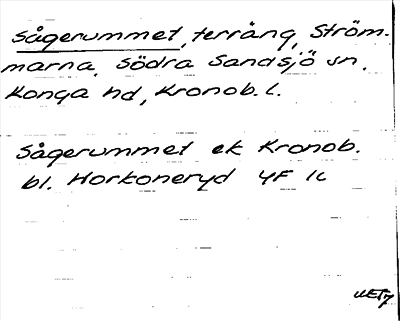 Sågerummet, terräng, Ström-
marna. Södra Sandsjö sn.
Konga hd, Kronob. l.
Sågerummet ek Kronob.
bl. Horkoneryd 4F 1c